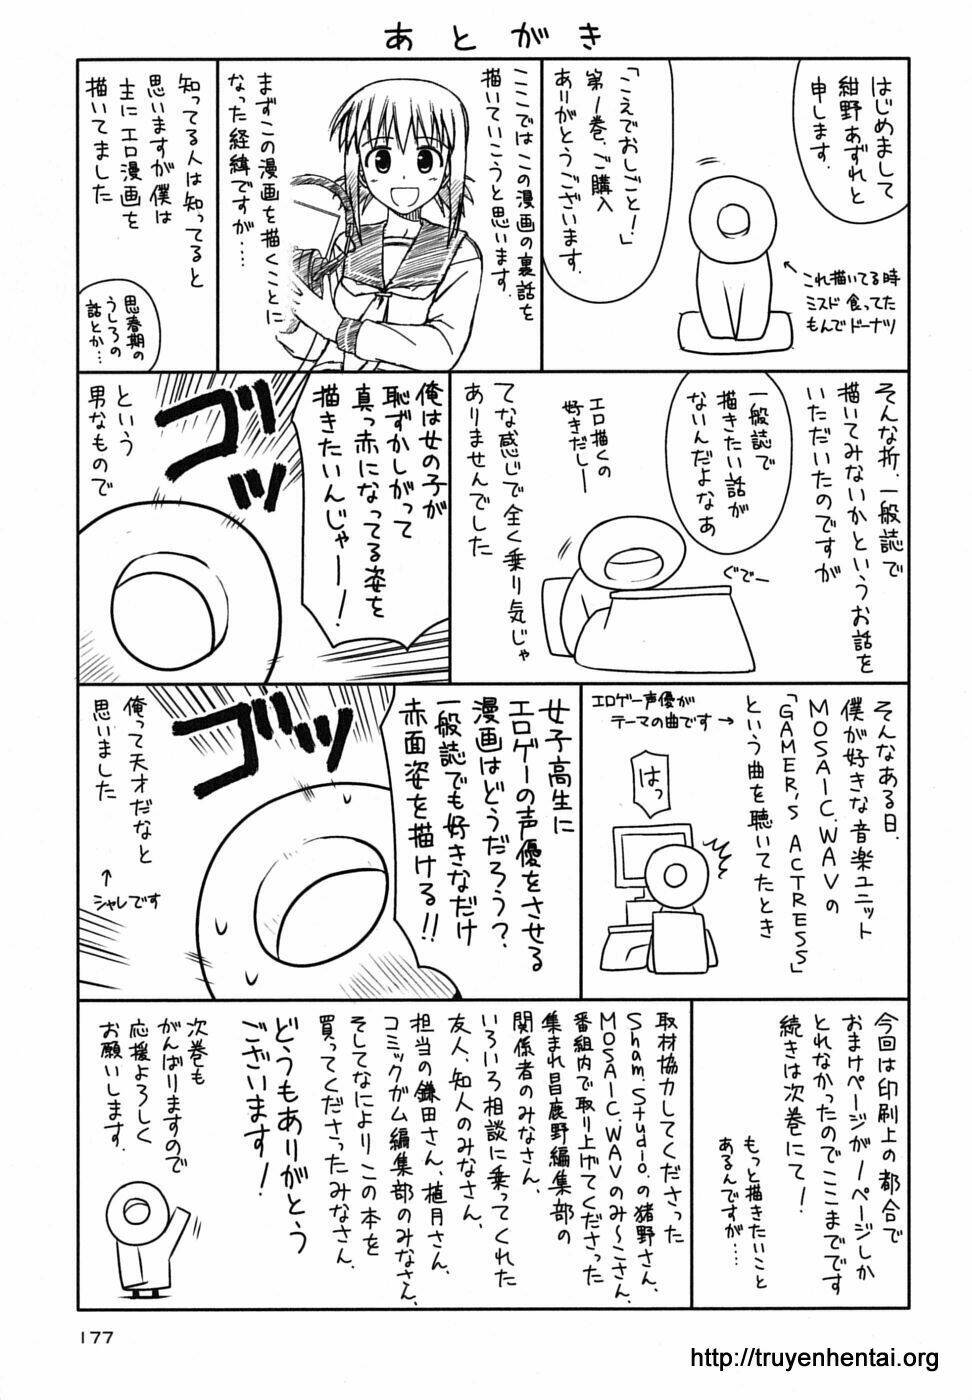 あとがき
はじめまして
紺野あずれと
申します。
←これ描いてる時
ミスド食ってた
もんでドーナツ
「こえでおしごと！」
第１巻、ご購入
ありがとうございます。
ここではこの漫画の裏話を
描いていこうと思います。
まずこの漫画を描くことに
なった経緯ですが…
知ってる人は知ってると
思いますが僕は
主にエロ漫画を
描いてました
思春期の
うしろの
話とか…
そんな折、一般誌で
描いてみないかというお話を
いただいたのですが
一般誌で
描きたい話が
ないんだよなあ
ぐでー
エロ描くの
好きだしー
てな感じで全く乗り気じゃ
ありませんでした
俺は女の子が
恥ずかしがって
真っ赤になってる姿を
描きたいんじゃー！
ゴッ
という
男なもので
そんなある日、
僕が好きな音楽ユニット
MOSAIC.WAVの
「GAMER'S ACTRESS」
という曲を聴いてたとき
エロゲー声優が
テーマの曲です→
はっ
女子高生に
エロゲーの声優をさせる
漫画はどうだろう？
一般誌でも好きなだけ
赤面姿を描ける！！
ゴゴッ
俺って天才だなと
思いました
←シャレです
今回は印刷上の都合で
おまけページが１ページしか
とれなかったのでここまでです
続きは次巻にて！
もっと描きたいこと
あるんですが…
取材協力してくださった
Sham.Studio.の猪野さん、
MOSAIC.WAVのみ〜こさん、
番組内で取り上げてくださった
集まれ昌鹿野編集部の
関係者のみなさん、
いろいろ相談に乗ってくれた
友人、知人のみなさん、
担当の鎌田さん、植月さん、
コミックガム編集部のみなさん、
そしてなによりこの本を
買ってくださったみなさん、
どうもありがとう
ございます！
次巻も
がんばりますので
応援よろしく
お願いします。
177
http://truyenhentai.org